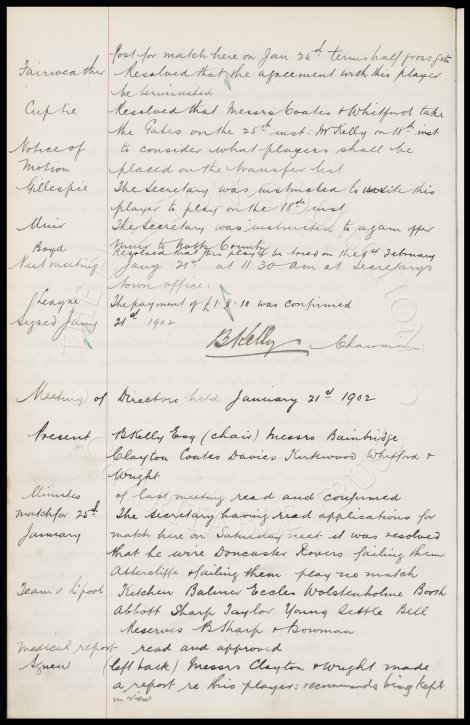 Post for match here on Jan 25th terms half gross gate
Fairweather Resolved that the agreement with this player
be terminated
Cup tie Resolved that Messrs Coates & Whitford take
the Gates on the 25th inst. Mr Kelly on 18th inst
Notice of Motion to consider what players shall be
placed on the transfer list
Gillespie The Secretary was instructed to write this
player to play on the 18th inst
Muir The Secretary was instructed to again offer
Muir to Notts County
Boyd Resolved that this player be tried on the 1st February
Next meeting Jany 21st at 11 30 am at Secretarys
town office:
League The payment of £1.8.10 was confirmed
Signed Jany 21st 1902
B Kelly Chairman
Meeting of Directors held January 21st 1902
Present B Kelly Esq (chair) Messrs Bainbridge
Clayton Coates Davies Kirkwood Whitford &
Wright
Minutes of last meeting read and confirmed
Match for 25th January The Secretary having read applications for
match here on Saturday next it was resolved
that he wire Doncaster Rovers failing them
Attercliffe & failing them play no match
Team v L'pool Kitchen Balmer Eccles Wolstenholme Booth
Abbott Sharp Taylor Young Settle Bell
Reserves B Sharp & Bowman
Medical report read and approved
Agnew (left back) Messrs Clayton & Wright made
a report re this player: recommends being kept
in view